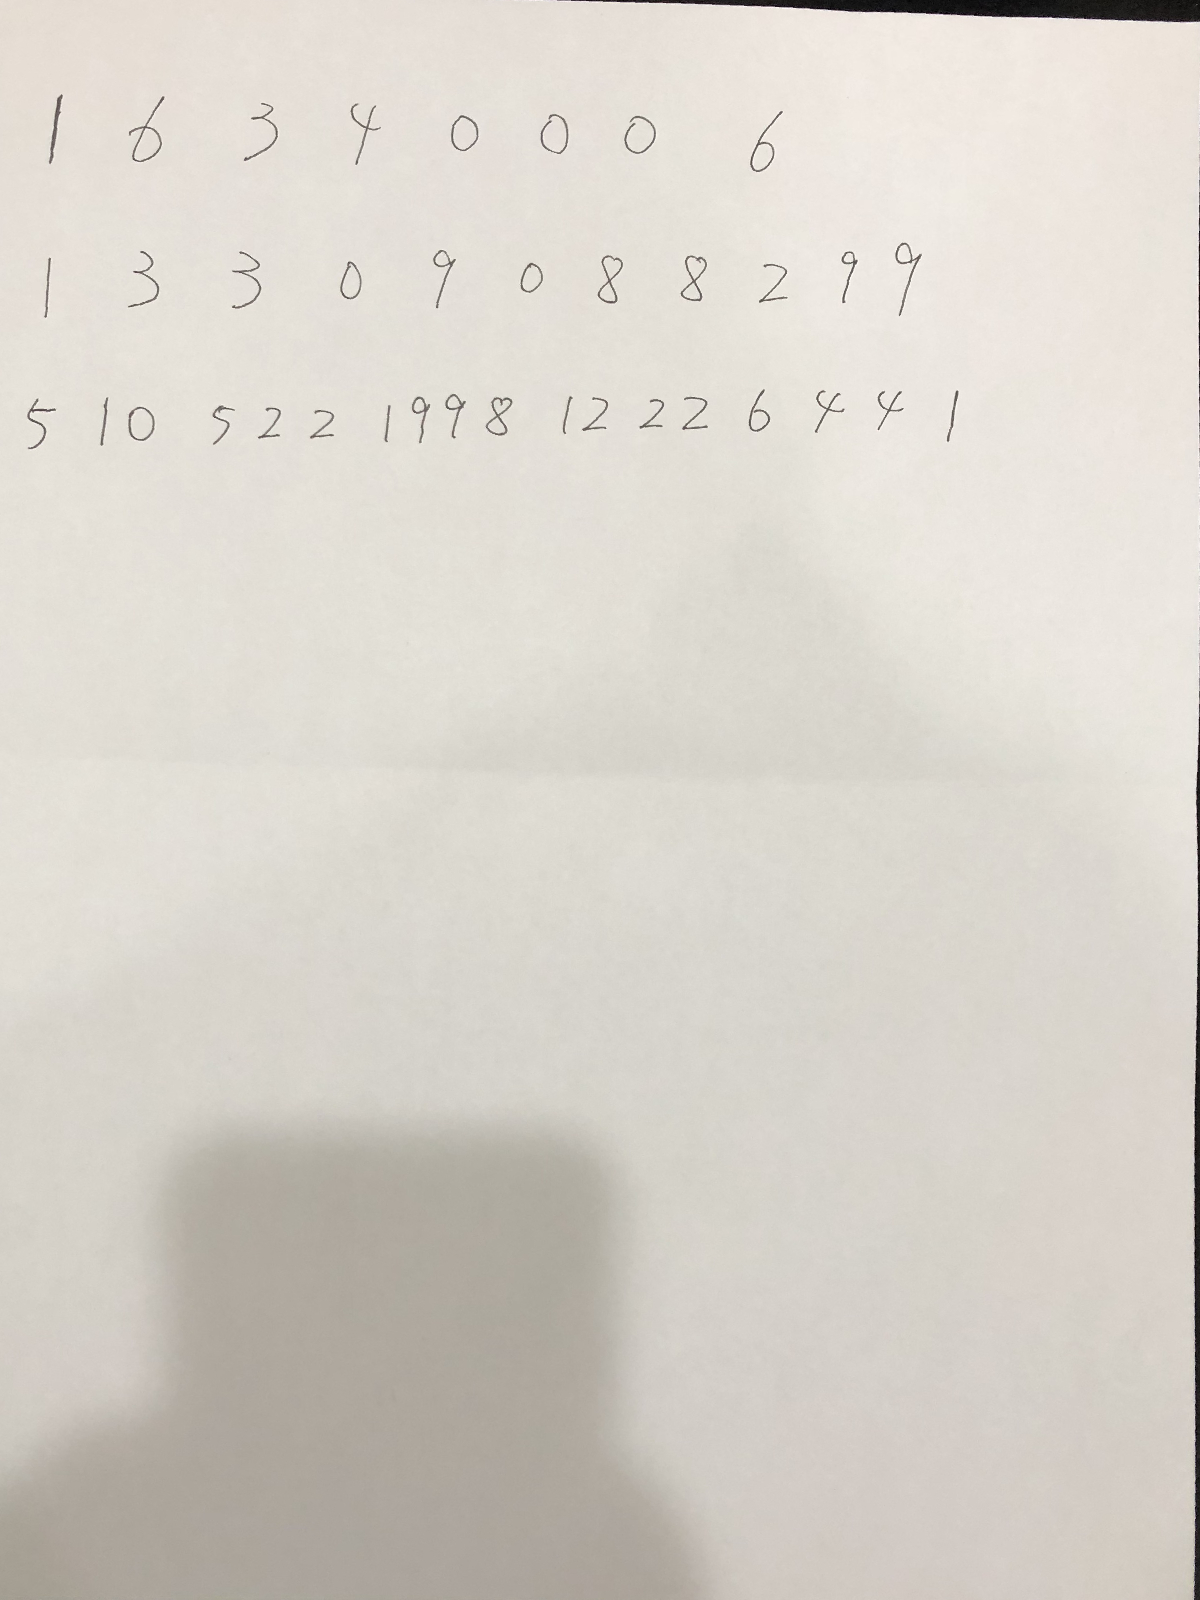 1 6 3 4 0 0 0 6
1 3 3 0 9 0 8 8 2 9 9
5 10 5 2 2 1998 12 22 6 4 4 1